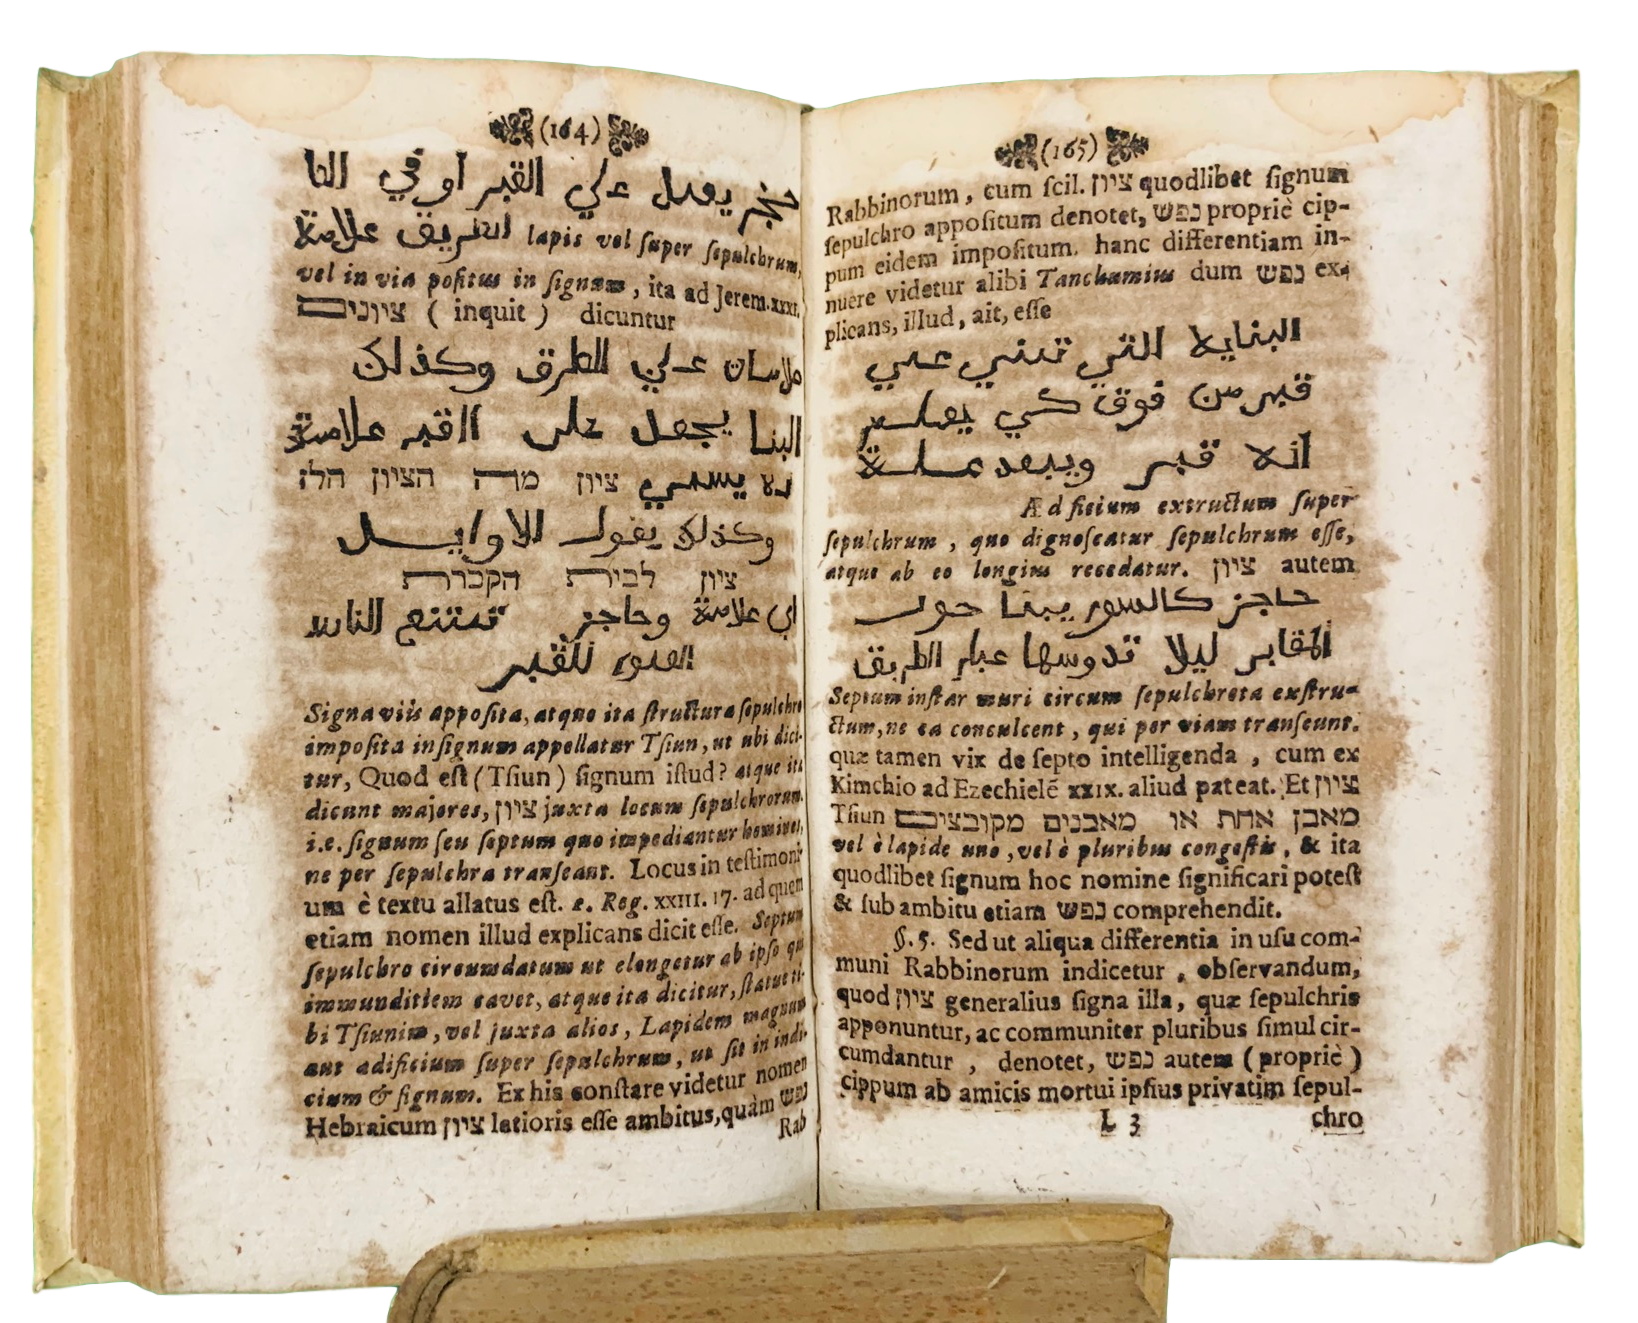 (164)
حجر يعمل علي القبر او في
الطريق علامة lapis vel super sepulchrum,
vel in via positus in signum, ita ad Jerem. xxxi.
ציונים ( inquit ) dicuntur
علي الطرق وكذلك
البنا يجعل على القبر علامة
يسمي ציון מה הציון הלז
وكذلك يقول الاوايل
ציון לבית הקברות
اي علامة وحاجز تمتنع الناس
للقبر
Signa viis apposita, atque ita structura sepulchro
imposita in signum appellatur Tsiun, ut ubi dici-
tur, Quod est (Tsiun) signum istud? atque ita
dicunt majores, ציון juxta locum sepulchrorum.
i.e. signum seu septum quo impediantur homines,
ne per sepulchra transeant. Locus in testimoni-
um è textu allatus est. 2. Reg. XXIII. 17. ad quem
etiam nomen illud explicans dicit esse. Septum
sepulchro circumdatum ut elongetur ab ipso qui
immunditiem cavet, atque ita dicitur, statue ti-
bi Tsiunim, vel juxta alios, Lapidem magnum
aut ædificium super sepulchrum, ut sit in indi-
cium & signum. Ex his constare videtur nomen
Hebraicum ציון latioris esse ambitus, quàm נפש
Rab
(165)
Rabbinorum, cum scil. ציון quodlibet signum
sepulchro appositum denotet, נפש propriè cip-
pum eidem impositum. hanc differentiam in-
nuere videtur alibi Tanchumius dum נפש ex-
plicans, illud, ait, esse
البناية التي تبني علي
قبر من فوق كي يعلم
انه قبر ويبعد عنه
Ædificium extructum super
sepulchrum, quo dignoscatur sepulchrum esse,
atque ab eo longius recedatur. ציון autem
حاجز كالسور يبنا حول
المقابر ليلا تدوسها عبار الطريق
Septum instar muri circum sepulchreta exstru-
ctum, ne ea conculcent, qui per viam transeunt.
quæ tamen vix de septo intelligenda, cum ex
Kimchio ad Ezechielē XXIX. aliud pateat. Et ציון
Tsiun מאבן אחת או מאבנים מקובצים
vel è lapide uno, vel è pluribus congestis, & ita
quodlibet signum hoc nomine significari potest
& sub ambitu etiam נפש comprehendit.
§. 5. Sed ut aliqua differentia in usu com-
muni Rabbinorum indicetur, observandum,
quod ציון generalius signa illa, quæ sepulchris
apponuntur, ac communiter pluribus simul cir-
cumdantur, denotet, נפש autem (propriè)
cippum ab amicis mortui ipsius privatim sepul-
L 3 chro